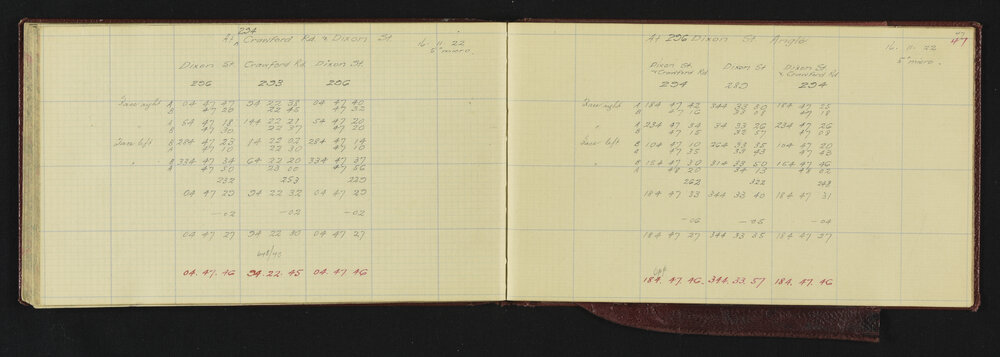 294
At Crawford Rd & Dixon St
16 11 22
5" micro.
Dixon St. Crawford Rd. Dixon St.
296 293 296
Face right A 04 47 47 94 22 38 04 47 40
B 47 20 22 45 47 32
" A 54 47 18 144 22 21 54 47 20
B 47 30 22 37 47 20
Face left B 284 47 23 14 22 02 284 47 14
A 47 10 22 30 47 10
" B 334 47 34 64 22 20 334 47 37
A 47 50 23 00 47 56
232 253 229
04 47 29 94 22 32 04 47 29
-02 -02 -02
04 47 27 94 22 30 04 47 27
04. 47. 46 94. 22. 45 04. 47. 46
47
47
At 296 Dixon St Angle
16. 11. 22
5" micro.
Dixon St. & Crawford Rd. Dixon St. Dixon St. & Crawford Rd.
294 289 294
Face right A 184 47 42 344 33 30 184 47 25
B 47 16 33 08 47 18
" A 234 47 34 34 33 26 234 47 26
B 47 15 32 57 47 09
Face left B 104 47 10 264 33 35 104 47 20
A 47 35 33 43 47 43
" B 154 47 30 314 33 50 154 47 46
A 48 20 34 13 48 02
262 322 248
184 47 33 344 33 40 184 47 31
-06 -05 -04
184 47 27 344 33 35 184 47 27
184. 47. 46 344. 33. 57 184. 47. 46